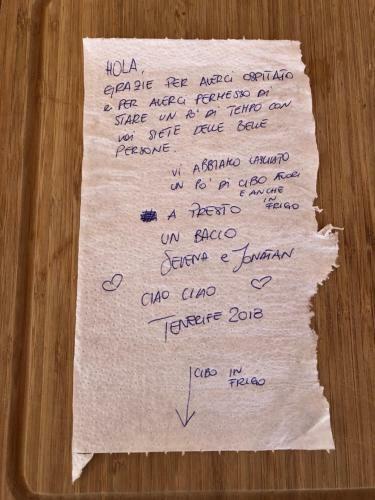 HOLA,
GRAZIE PER AVERCI OSPITATO
e PER AVERCI PERMESSO DI
STARE UN PO' DI TEMPO CON
VOI SIETE DELLE BELLE
PERSONE.
VI ABBIAMO LASCIATO
UN PO' DI CIBO FUORI
E ANCHE
IN
FRIGO
A PRESTO
UN BACIO
SELENA e JONATAN
CIAO CIAO
TENERIFE 2018
CIBO IN
FRIGO